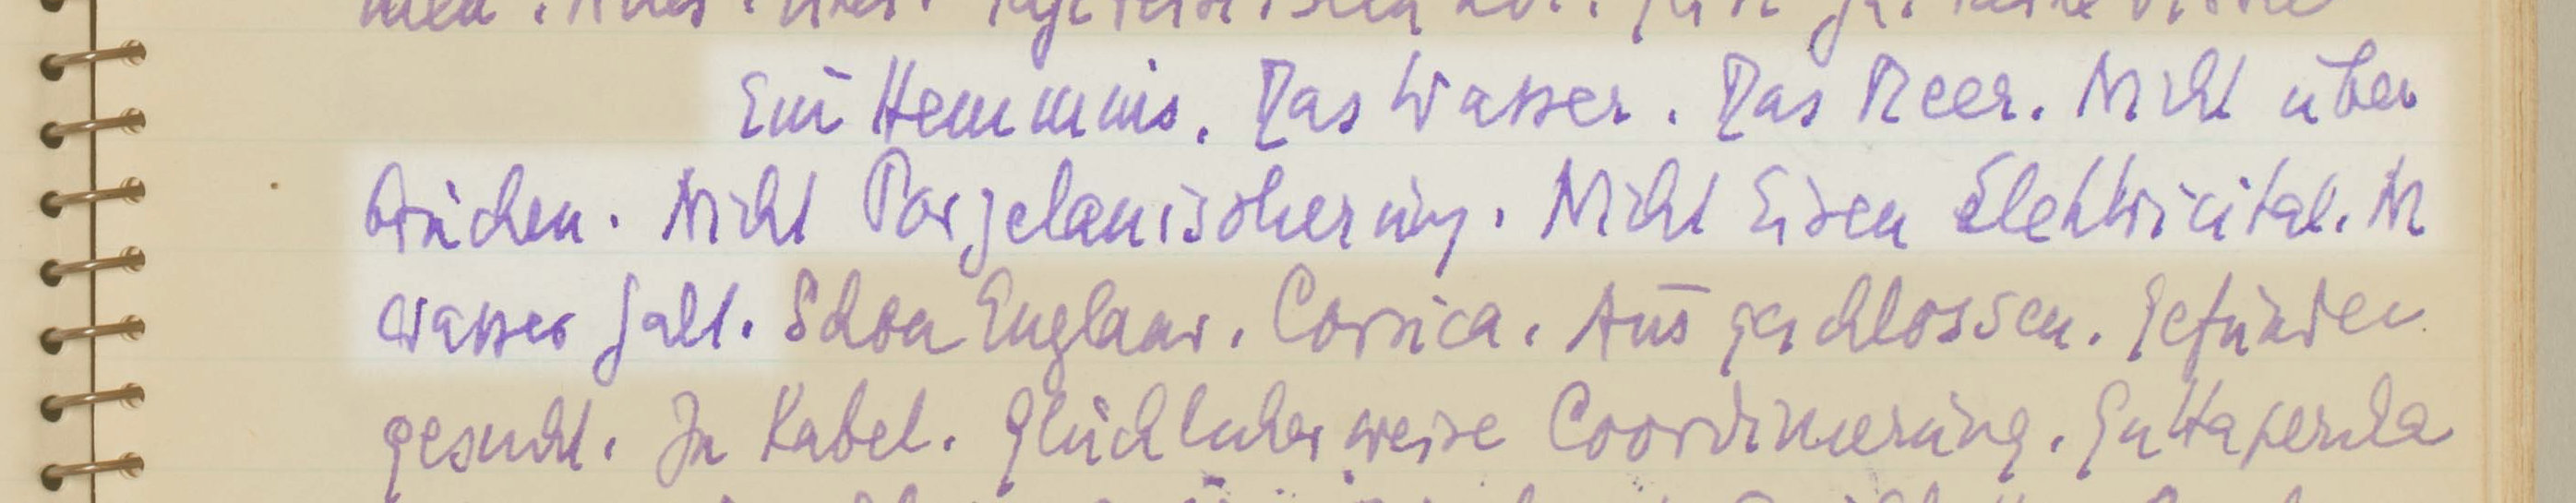 Ein Hemmnis. Das Wasser. Das Meer. Nicht über
brücken. Nicht Porzelanisolierung. Nicht Eisen Elektricität. In
Wasser fällt. Schon England. Corsica. Ausgeschlossen. Gefunden
gesucht. In Kabel. Glücklicherweise Coordinierung. Guttapercha